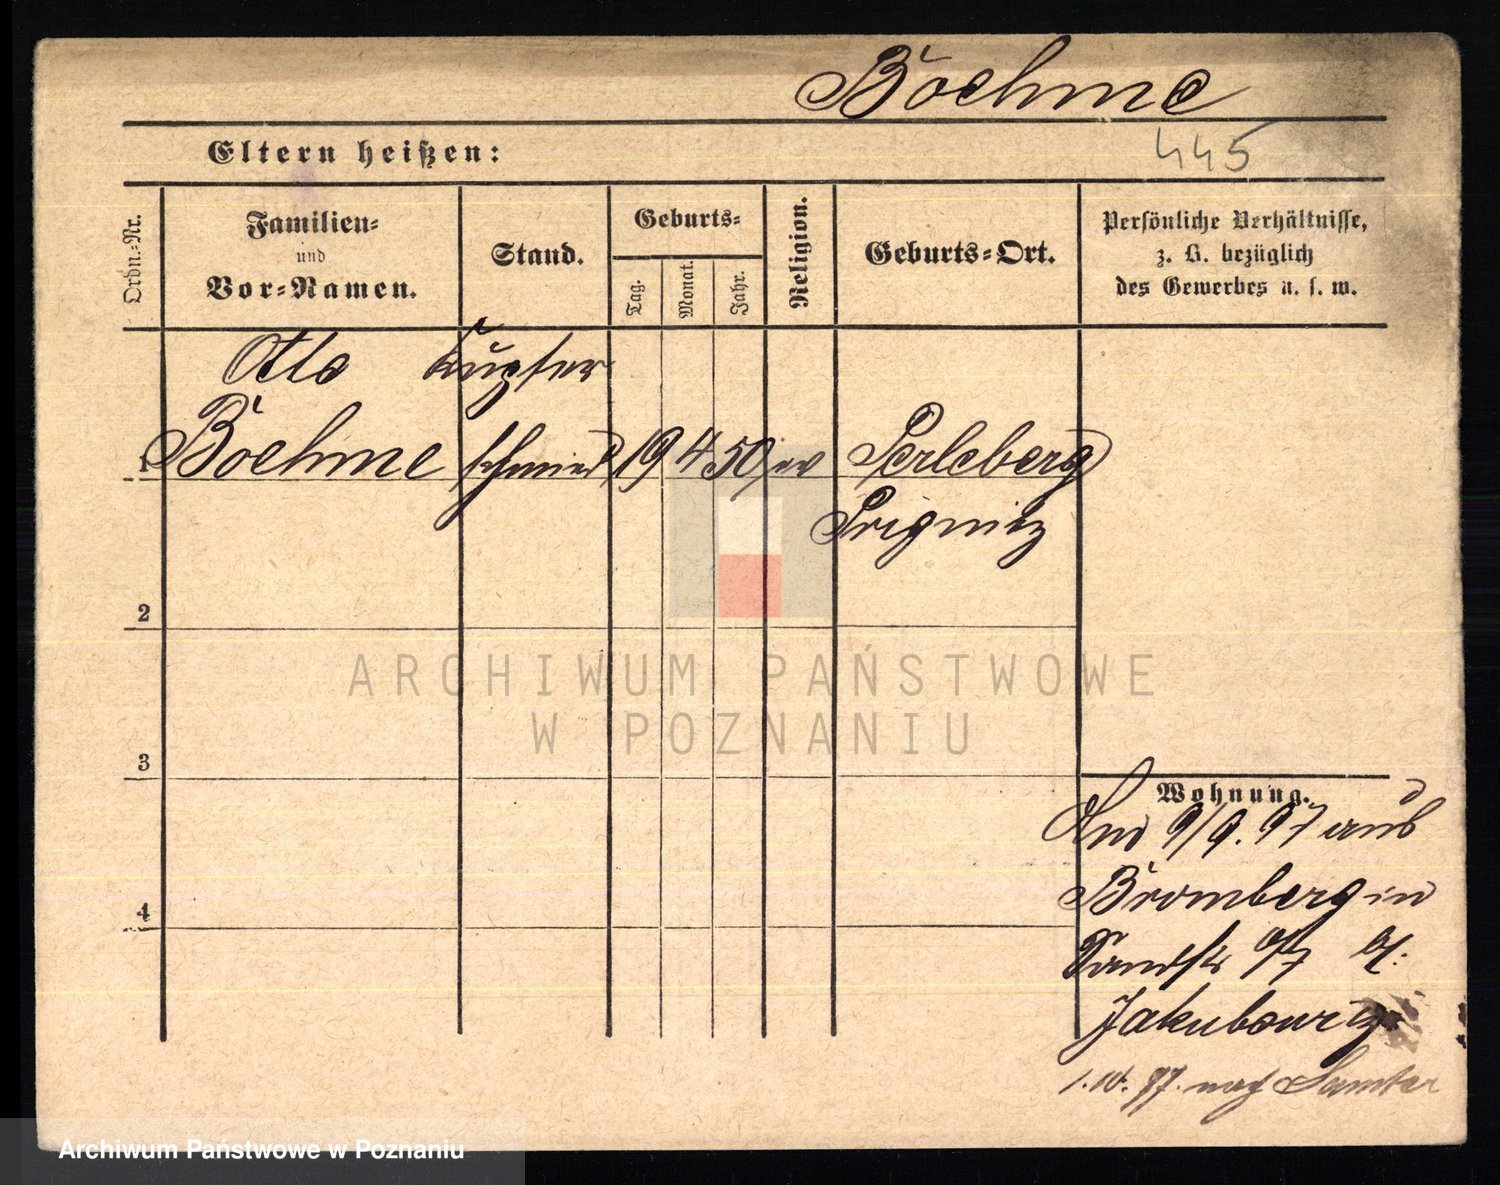 Boehme
445
Eltern heißen:
Ordn.-Nr.
Familien-
und
Vor-Namen.
Stand.
Geburts-
Tag.
Monat.
Jahr.
Religion.
Geburts-Ort.
Persönliche Verhältnisse,
z. B. bezüglich
des Gewerbes u. s. w.
Otto Kupfer
1 Boehme schmied 19 4 50 ev Perleberg
Prignitz
2
3
4
Wohnung.
9/9.97 aus
Bromberg in
Sandstr
Jakubowicz
1.10.97. nach Samter
ARCHIWUM PAŃSTWOWE
W POZNANIU
Archiwum Państwowe w Poznaniu